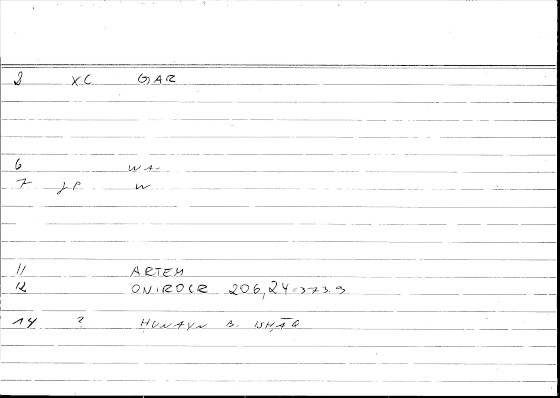 2 XC GAR
6 WA-
7 JP W
11 ARTEM
12 ONIROCR 206,24-373.9
14 ? HUNAYN B. ISHĀQ